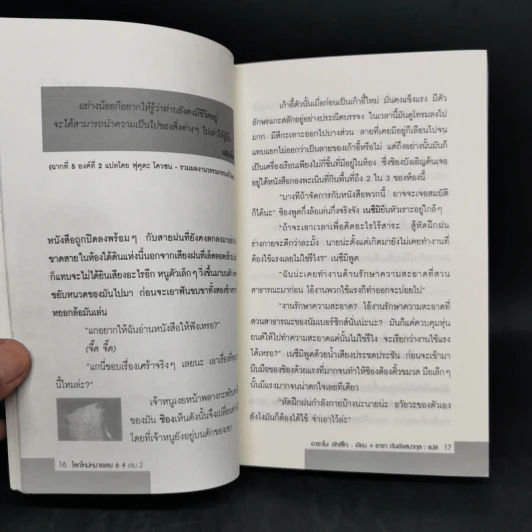 อย่างน้อยก็อยากให้รู้ว่าท่านยังคงมีชีวิตอยู่
จะได้สามารถนำความเป็นไปของสิ่งต่างๆ ไปเล่าให้ผู้อื่น
(ฉากที่ 5 องค์ที่ 2 แปลโดย ฟุคุดะ
หนังสือถูกปิดลงพร้อมๆ กับสายฝนที่ยังคงตกลงมา
ขาดสายในห้องใต้ดินแห่งนี้นอกจากเสียงฝนที่เล็ดลอด
ก็แทบจะไม่ได้ยินเสียงอะไรอีก หนูตัวเล็กๆ วิ่งขึ้นมาบน
ขยับหนวดของมันไปมา ก่อนจะเอาฟันขบขาทั้งสองข้าง
หยอกล้อมันเล่น
"แกอยากให้ฉันอ่านหนังสือให้ฟังเหรอ?"
(จี๊ด จี๊ด)
"แกนี่ชอบเรื่องเศร้าจริงๆ เลยนะ เอาเรื่องที่
นี้ไหมล่ะ?"
เจ้าหนูเงยหน้าพลางกะพริบ
ของมัน ชิองเห็นดังนั้นจึงเปลี่ยน
โดยที่เจ้าหนูยังอยู่บนตักของเขา
16 โลกใหม่หมายเลข 6 # เล่ม 2
เก้าอี้ตัวนั้นเมื่อก่อนเป็นเก้าอี้ใหม่ มั่นคงแข็งแรง มีตัว
อักษรแกะสลักอยู่อย่างประณีตบรรจง ในเวลานี้มันดูโทรมลงไป
มาก มีสีกะเทาะออกไปบางส่วน ลายที่เคยมีอยู่ก็เลือนไปจน
แทบแยกไม่ออกว่าเป็นลายของเก้าอี้หรือไม่ แต่ถึงอย่างนั้นมันก็
เป็นเครื่องเรือนเพียงไม่กี่ชิ้นที่มีอยู่ในห้อง ซึ่งชิองบังเอิญค้นเจอ
อยู่ใต้หนังสือกองพะเนินที่กินพื้นที่ถึง 2 ใน 3 ของห้องนี้
"บางทีถ้าจัดการกับหนังสือพวกนี้ อาจจะเจอสมบัติ
ก็ได้นะ" ชิองพูดกึ่งล้อเล่นกึ่งจริงจัง เนซึมิยืนหัวเราะอยู่ใกล้ๆ
"ถ้าจะเอาเวลาเพื่อคิดอะไรไร้สาระ สู้หัดฝึก
ร่างกายจะดีกว่าละมั้ง นายน่ะตั้งแต่เกิดมายังไม่เคยทำงานที่
ต้องใช้แรงเลยไม่ใช่รึ?" เนซึมิพูด
"ฉันน่ะเคยทำงานด้านรักษาความสะอาดที่สวน
สาธารณะมาก่อน ไอ้งานพวกใช้แรงก็ทำออกจะบ่อยไป"
"งานรักษาความสะอาด? ไอ้งานรักษาความสะอาดที่
สวนสาธารณะของนัมเบอร์ซิกส์นั่นน่ะนะ? มันก็แค่ควบคุมหุ่น
ยนต์ให้ไปทำความสะอาดแค่นั้นไม่ใช่รึไง จะเรียกว่างานใช้แรง
ได้เหรอ?" เนซึมิพูดด้วยน้ำเสียงประชดประชัน ก่อนจะเข้ามา
บีบมือของชิองด้วยแรงที่มากจนทำให้ชิองต้องคิ้วขมวด มือเล็กๆ
นั้นมีแรงมากจนน่าตกใจเลยทีเดียว
"หัดฝึกกำลังกายบ้างนะนายน่ะ อวัยวะของตัวเอง
ยังไงมันก็ต้องได้ใช้ จำเอาไว้ล่ะ"
อาซาโนะ อัตสึโกะ : เขียน
แปล 17